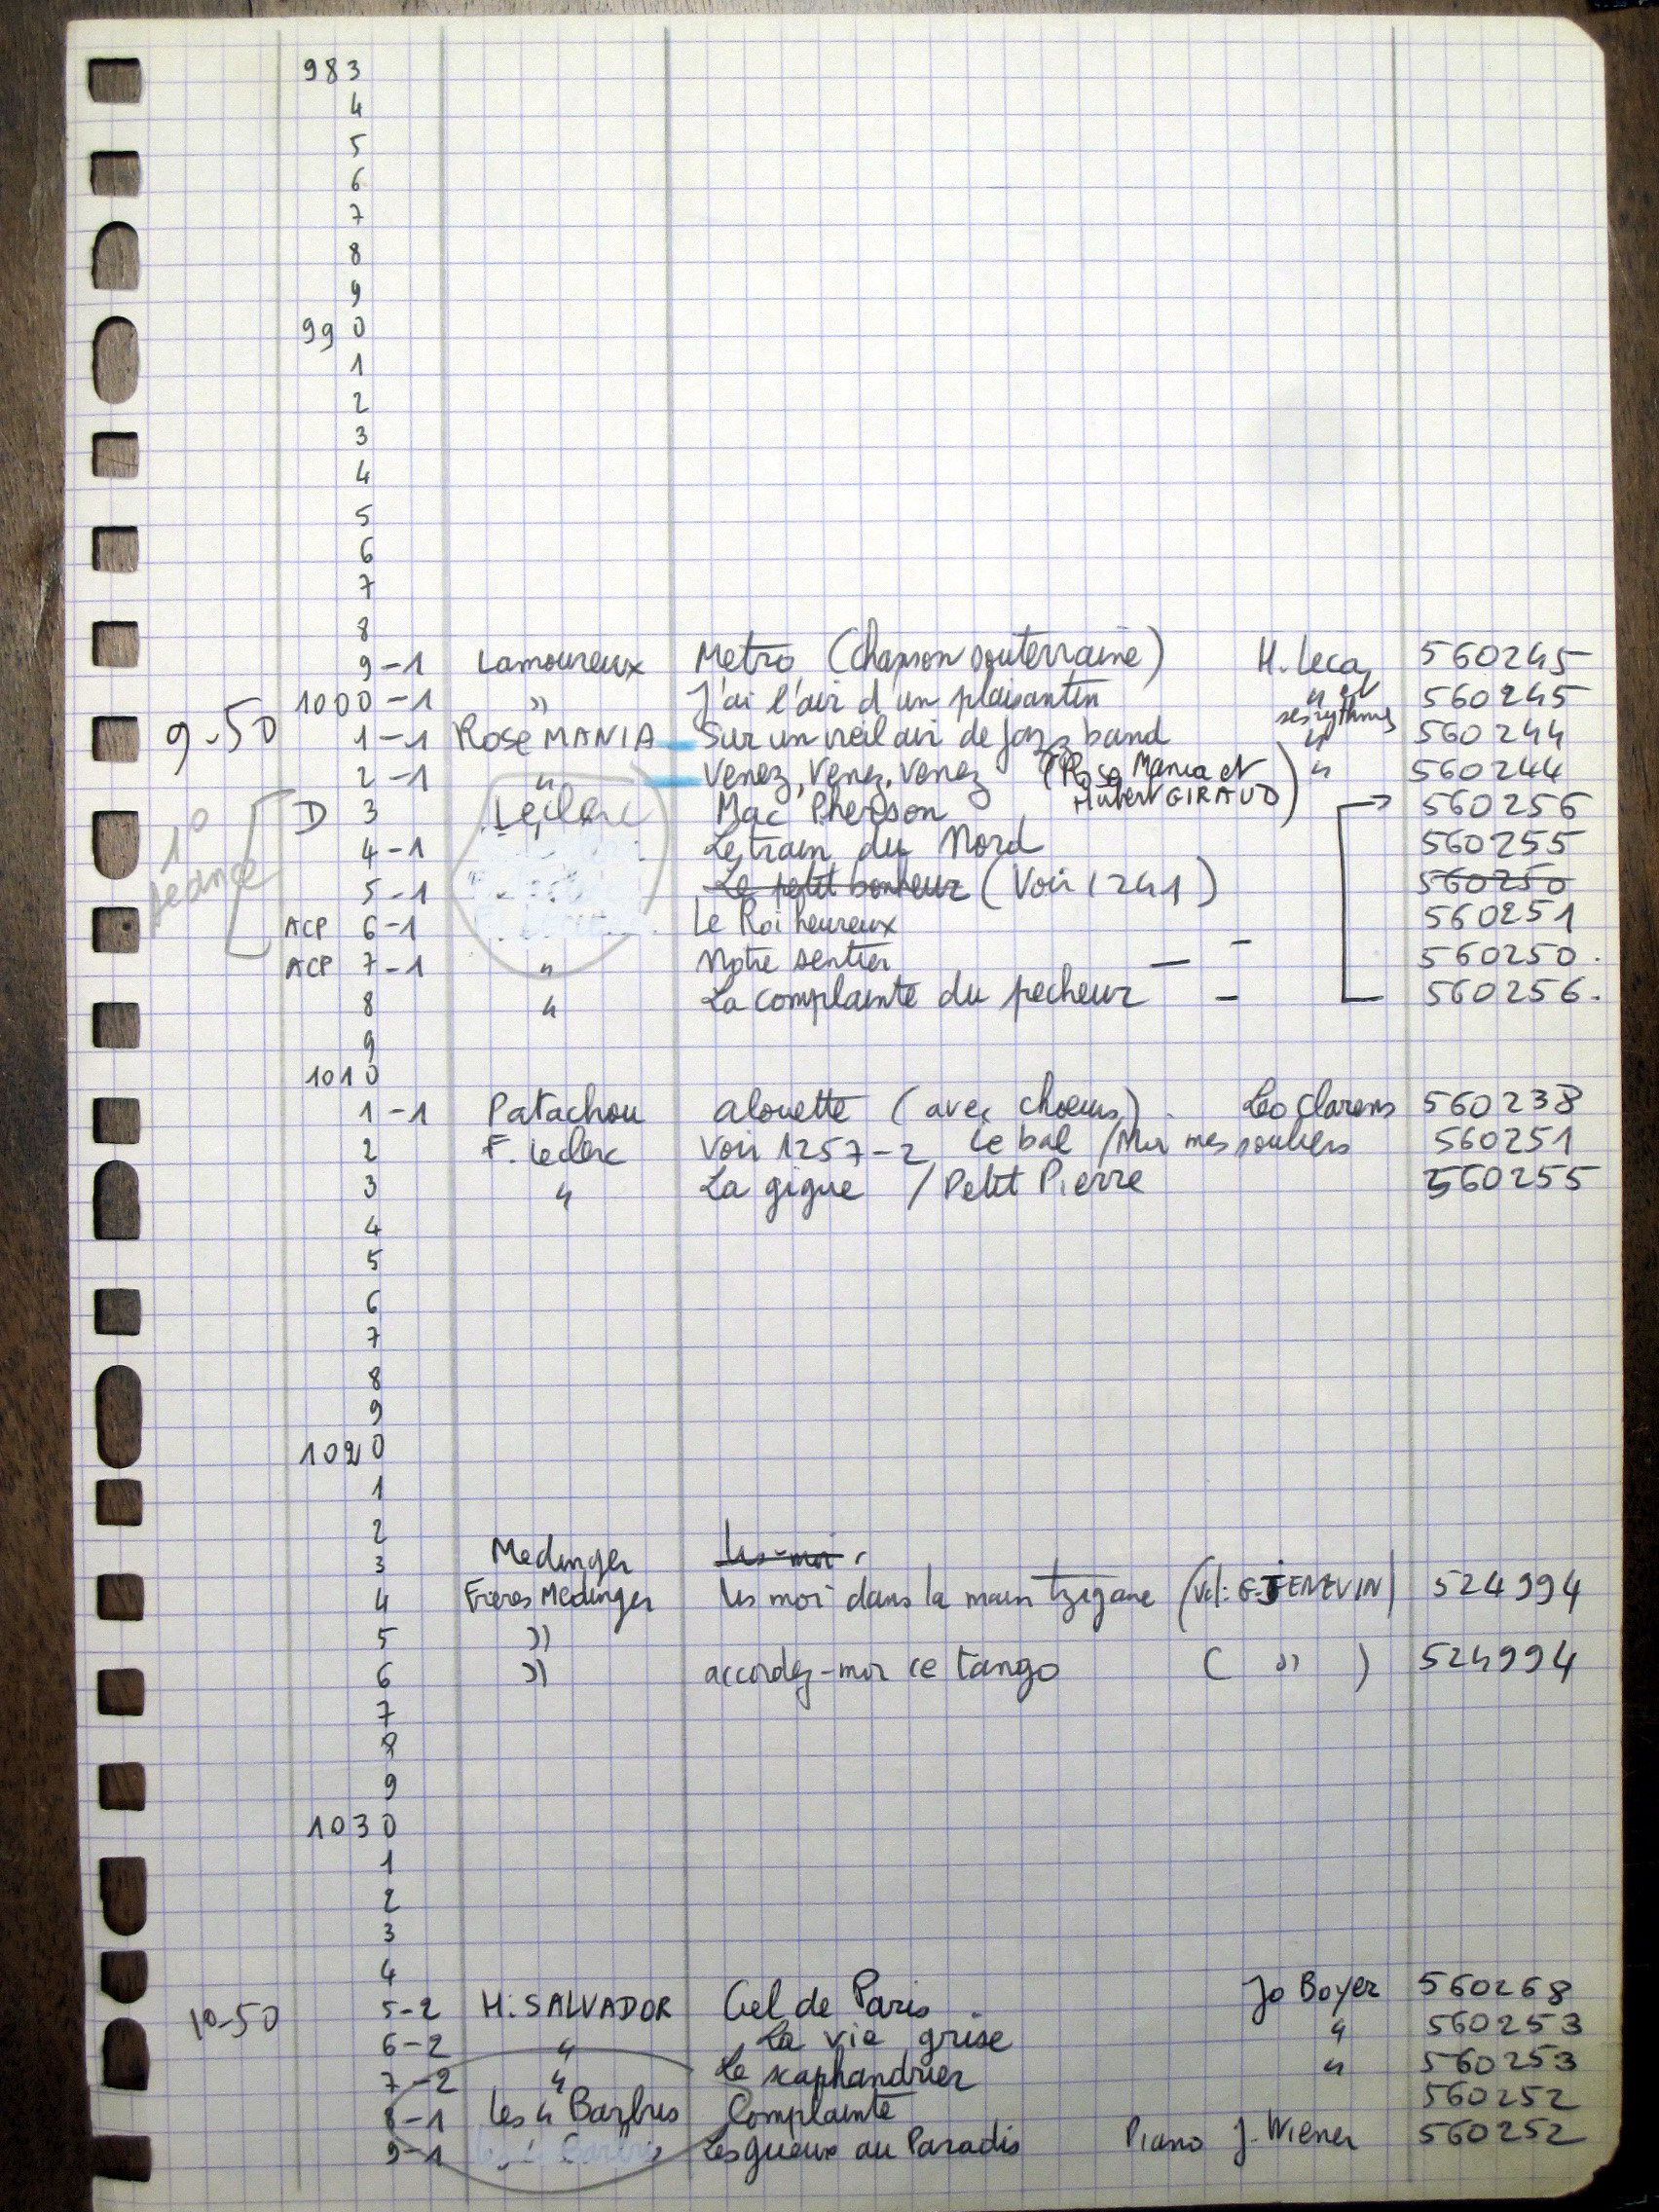 983
4
5
6
7
8
9
99 0
1
2
3
4
5
6
7
8
9-1 Lamoureux Metro (Chanson souterraine) H. Leca 560245
1000-1 " J'ai l'air d'un plaisantin " et ses rythmes 560245
9-50 1-1 Rose MANIA Sur un vieil air de Jazz band " 560244
2-1 " Venez, Venez, Venez (Rose Mania et Hubert GIRAUD) " 560244
1° séance D 3 Leclerc Mac Pherson 560256
4-1 Le train du Nord 560255
5-1 Le petit bonheur (Voir 1241) 560250
ACP 6-1 Le Roi heureux 560251
ACP 7-1 " Notre sentier — 560250.
8 " La complainte du pecheur - 560256.
9
1010
1-1 Patachou alouette (avec choeurs). Leo Clarens 560238
2 F. Leclerc Voir 1257-2 Le bal / Moi mes souliers 560251
3 " La gigue / Petit Pierre 560255
4
5
6
7
8
9
1020
1
2
3 Medinger Lis-moi
4 Frères Medinger Lis moi dans la main tzigane (Vcl: G. JENEVIN) 524994
5 "
6 " accordez-moi ce tango ( " ) 524994
7
8
9
1030
1
2
3
4
10-50 5-2 H. SALVADOR Ciel de Paris Jo Boyer 560268
6-2 " La vie grise " 560253
7-2 " Le scaphandrier " 560253
8-1 Les 4 Barbus Complainte 560252
9-1 Les 4 Barbus Les gueux au Paradis Piano J. Wiener 560252